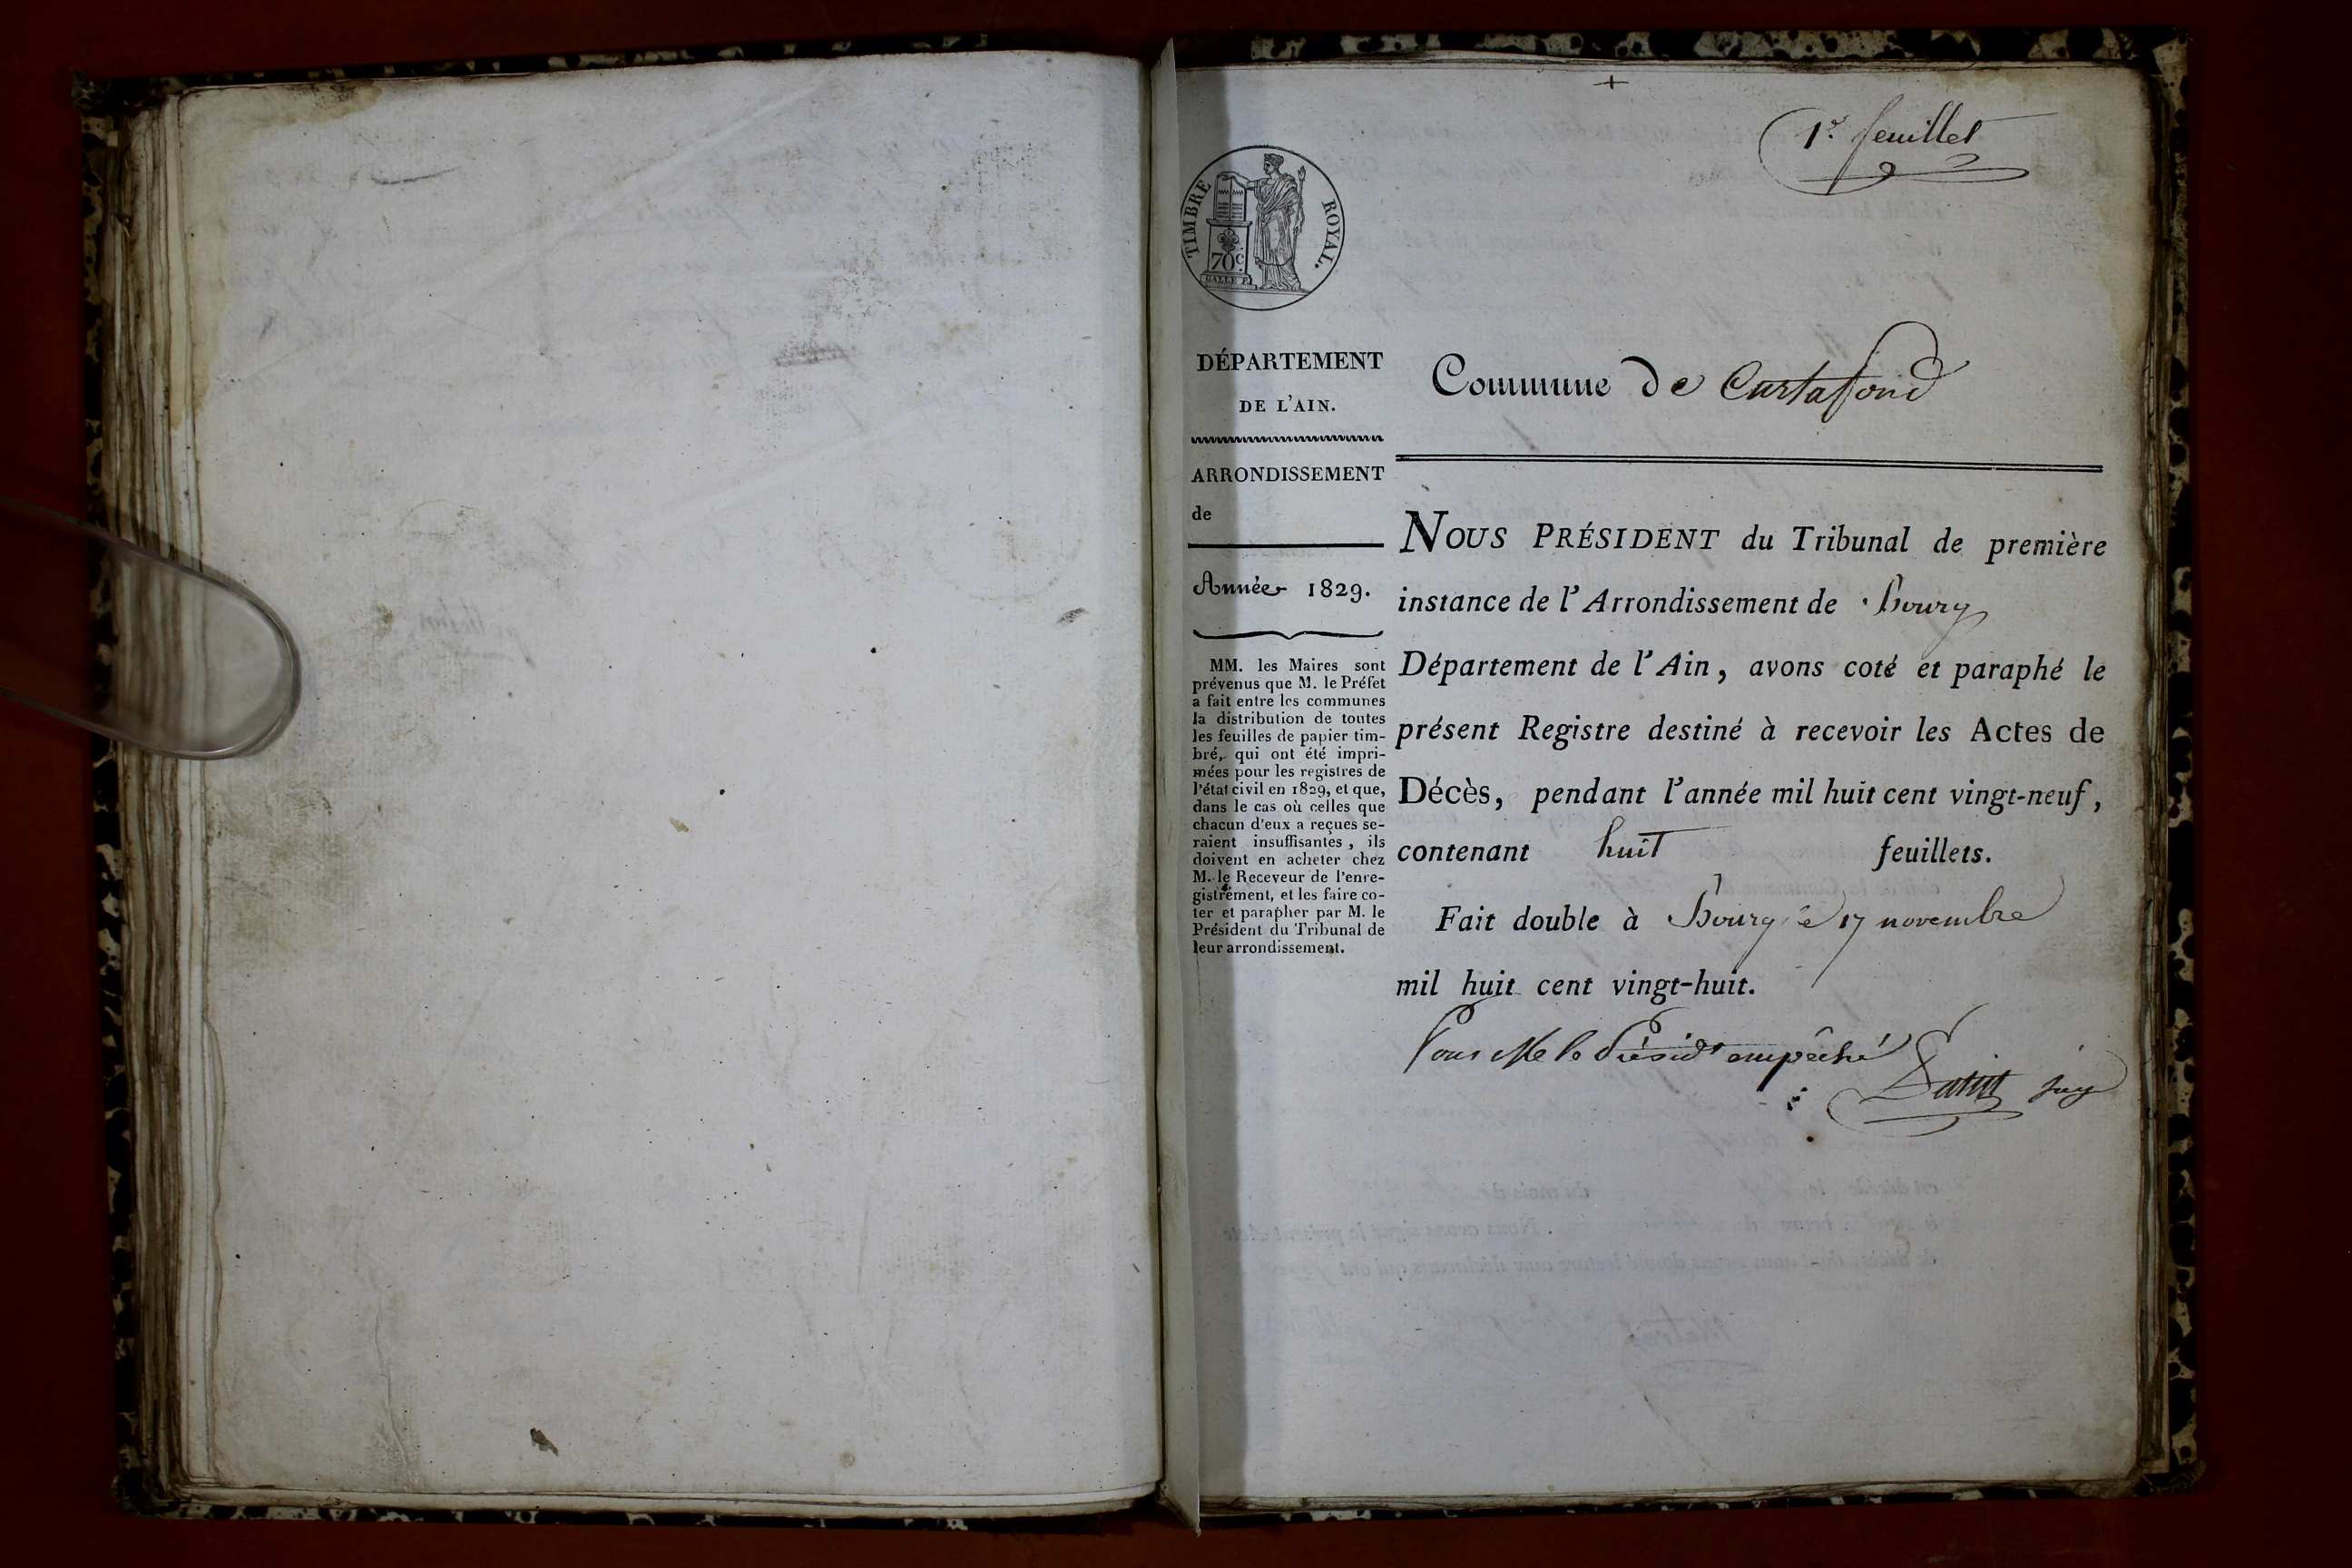 1er feuillet
TIMBRE ROYAL.
70c.
GALLE F.
DÉPARTEMENT
DE L'AIN.
ARRONDISSEMENT
de
Année 1829.
MM. les Maires sont
prévenus que M. le Préfet
a fait entre les communes
la distribution de toutes
les feuilles de papier tim-
bré, qui ont été impri-
mées pour les registres de
l'état civil en 1829, et que,
dans le cas où celles que
chacun d'eux a reçues se-
raient insuffisantes, ils
doivent en acheter chez
M. le Receveur de l'enre-
gistrement, et les faire co-
ter et parapher par M. le
Président du Tribunal de
leur arrondissement.
Commune de Curtafond
NOUS PRÉSIDENT du Tribunal de première
instance de l'Arrondissement de Bourg
Département de l'Ain, avons coté et paraphé le
présent Registre destiné à recevoir les Actes de
Décès, pendant l'année mil huit cent vingt-neuf,
contenant huit feuillets.
Fait double à Bourg le 17 novembre
mil huit cent vingt-huit.
Pour Mr le Présidt empêché